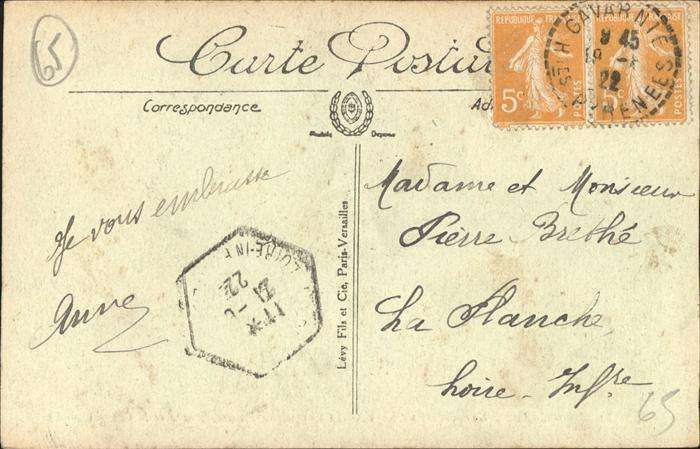 65
Carte Postale
Correspondance
REPUBLIQUE FRANÇAISE
5c POSTES
GAVARNIE
8 45
22
PYRENEES
Modèle Déposé
Je vous embrasse
Anne
LOIRE-INF
21
22
Lévy Fils et Cie, Paris-Versailles
Madame et Monsieur
Pierre Brethé
La Planche
Loire-Infre
65